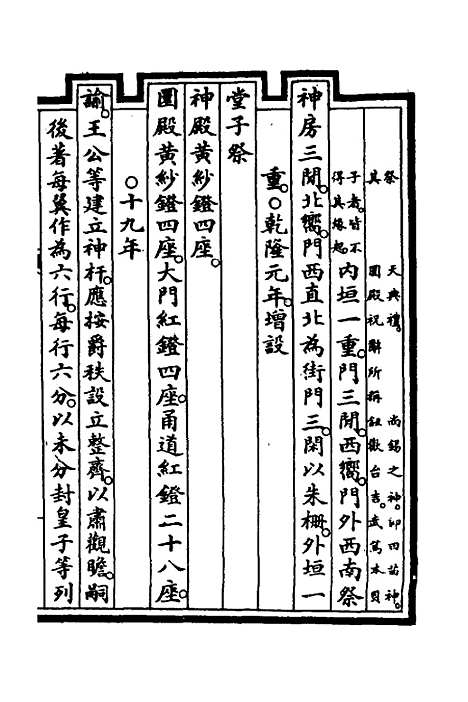 祭
天典禮。
尚錫之神。即田苗神。
其
圜殿祝辭所稱鈕歡台吉。武篤本貝
子者。皆不
得其緣起。
內垣一重。門三閒。西嚮。門外西南祭
神房三閒。北嚮。門西直北為街門三。閑以朱柵。外垣一
重。○乾隆元年。增設
堂子祭
神殿黃紗鐙四座。
圜殿黃紗鐙四座。大門紅鐙四座。甬道紅鐙二十八座。
○十九年
諭。王公等建立神杆。應按爵秩設立整齊。以肅觀瞻。嗣
後著每翼作為六行。每行六分。以未分封皇子等列